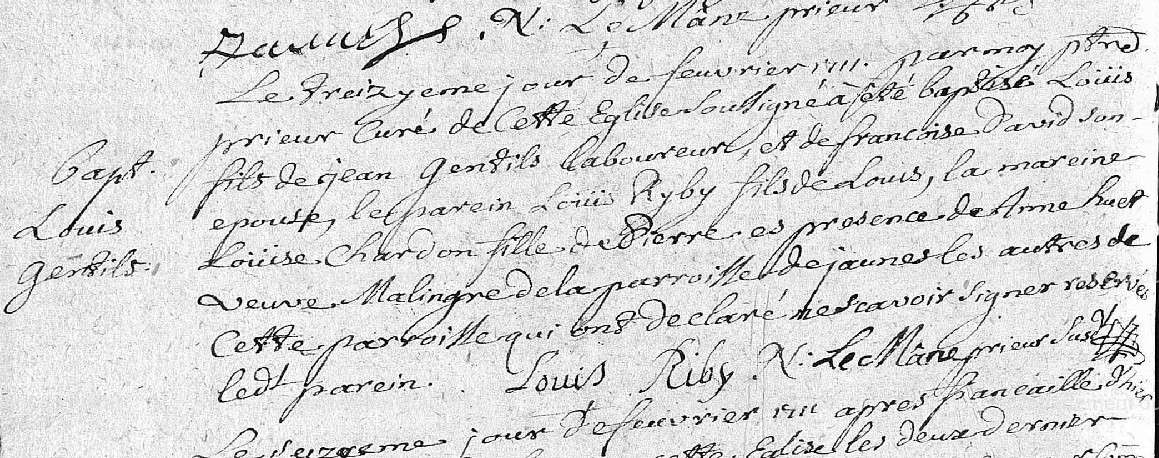 N: Le Mane prieur
Le treizyeme jour de feuvrier 1711. par moy
prieur Curé de Cette Eglise soussigné à été baptisé Loüis
fils de jean Gentils laboureur, et de francoise David son
Bapt. epouse, le parein Loüis Ryby fils de Louis, la mareine
Louis Loüise Chardon fille de Pierre es presence de Anne huet
Gentils. veuve Malingre de la parroisse de jaunes les autres de
Cette parroisse qui ont declaré ne scavoir signer reservés
ledt parein. Louis Riby N: Le Mane prieur susd
Le seizyeme jour de feuvrier 1711 apres fiancaille d'hier
cette Eglise les deux dernier